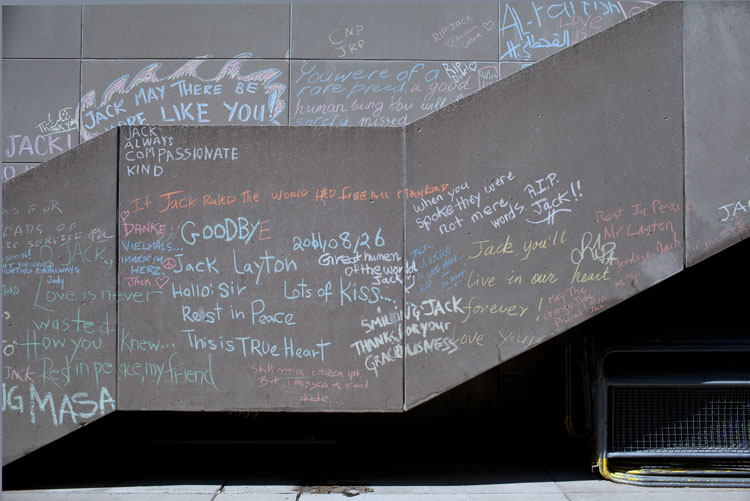 CNP
JRP
RIP JACK
A-
Love
القصطا
JACK MAY THERE BE
MORE LIKE YOU!
You were of a
rare breed, a good
human being. You will
sorely missed
RIP
Thank
you
JACK!
JACK
ALWAYS
COMPASSIONATE
KIND
If JACK RULED THE WORLD HED FREE ALL MANKIND
DANKE
VIELMALS...
IMMER IM
HERZ
JACK
GOODBYE
Jack Layton
Hallo! Sir
Rest in Peace
This is TRUe Heart
2011/08/26
Great human
of the world
Jack
Lots of Kiss...
Still not a citizen yet,
But I missed a cool
dude...
when you
spoke they were
not mere
words
R.I.P.
Jack!!
Jack, you'll
live in our heart
forever!
Love you
SMILING JACK
THANKS FOR YOUR
GRACIOUSNESS
Rest In Peace
Mr Layton
Goodbye Jack
RIP
May the
JACK
FOR
OF
SERVICE
Judy
JACK,
Love is never
wasted
How you Knew...
Rest in peace, my friend
JACK
NG MASA